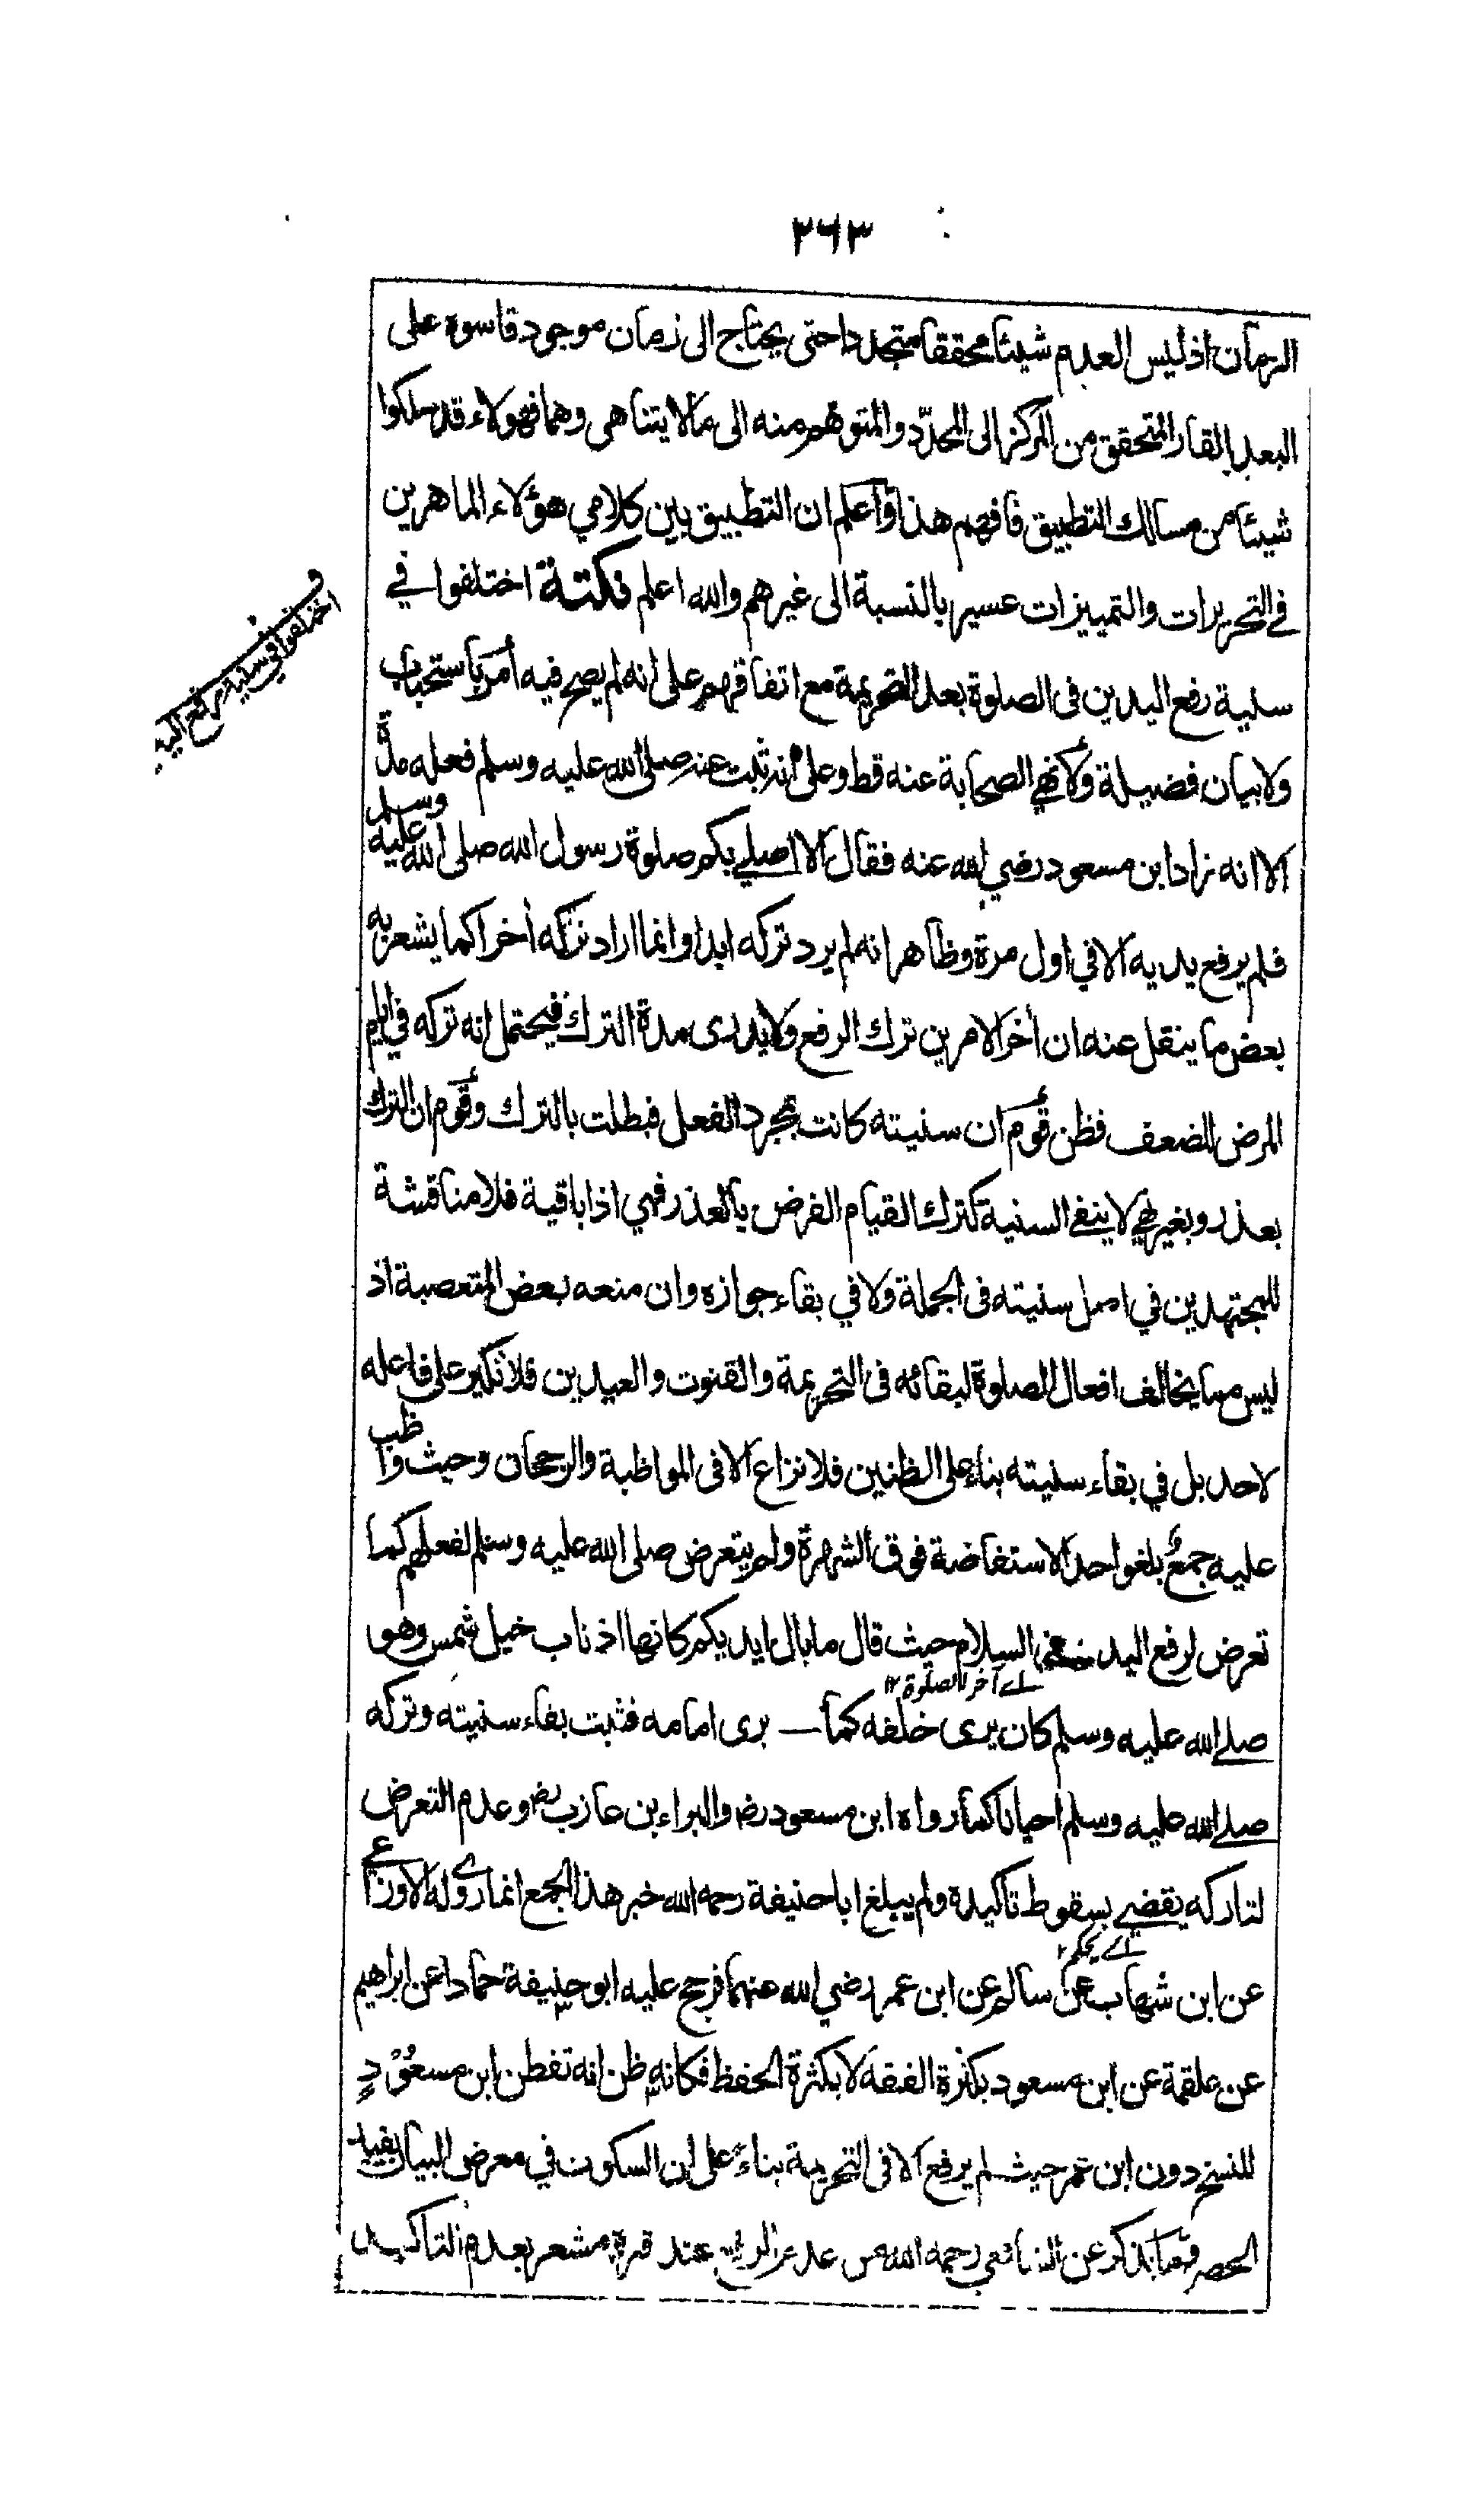 ٢٦٣
الزمان اذ ليس العدم شيئا محققا متجددا حتى يحتاج الى زمان موجود قاسوه على
البعد القار المتحقق من المركز الى المحدد والمتوهم منه الى مالا يتناهى وهما فهولاء قد سلكوا
شيئا من مسالك التطبيق فافهم هذا واعلم ان التطبيق بين كلامي هؤلاء الماهرين
في التحريرات والتمييزات عسير بالنسبة الى غيرهم والله اعلم نكتة اختلفوا في
سنية رفع اليدين فى الصلوة بعد التحريمة مع اتفاقهم على انه لم يصح فيه أمر باستحباب
ولا بيان فضيلة ولا نهي الصحابة عنه قط وعلى انه ثبت عنه صلى الله عليه وسلم فعله مدة
الا انه زاد ابن مسعود رضي الله عنه فقال الا اصلے بكم صلوة رسول الله صلى الله عليه وسلم
فلم يرفع يديه الا في اول مرة وظاهر انه لم يرد تركه ابدا وانما اراد تركه أخرا كما يشعر به
بعض ما ينقل عنه ان أخر الامرين ترك الرفع ولا يدرى مدة الترك فيحتمل انه تركه في ايام
المرض للضعف فظن قوم ان سنيته كانت بمجرد الفعل فبطلت بالترك وقوم ان الترك
بعذر وبغير نهي لا ينفے السنية كترك القيام الفرض بالعذر فهي اذا باقية فلا مناقشة
للمجتهدين في اصل سنيته فى الجملة ولا في بقاء جوازه وان منعه بعض المتعصبة اذ
ليس مما يخالف افعال الصلوة لبقائه فى التحريمة والقنوت والعيدين فلا نكير على فاعله
لاحد بل في بقاء سنيته بناء على الظنين فلا نزاع الا فى المواظبة والرجحان وحيث واظب
عليه جمع بلغوا حد الاستفاضة فوق الشهرة ولم يتعرض صلى الله عليه وسلم لفعلهم كما
تعرض لرفع اليد عند السلام حيث قال ما بال ايديكم كانها اذناب خيل شمس وهو
اے آخر الصلوة ١٢
صلے الله عليه وسلم كان يرى خلفه كما يرى امامه فثبت بقاء سنيته وتركه
صلے الله عليه وسلم احيانا كما رواه ابن مسعود رض والبراء بن عازب رض وعدم التعرض
لتاركه يقضے بسقوط تاكيده ولم يبلغ ابا حنيفة رحمه الله خبر هذا الجمع انما روى له الاوزاعے
اے يحكم ١٢
عن ابن شهاب عن سالم عن ابن عمر رضي الله عنهما فرجح عليه ابو حنيفة حمادا عن ابراهيم
عن علقمة عن ابن مسعود بكثرة الفقه لا بكثرة الحفظ فكانه ظن انه تفطن ابن مسعود
للنسخ دون ابن عمر حيث لم يرفع الا فى التحريمة بناء على ان السكوت في معرض البيان يفيد
الحصر وما يذكر عن الشافعي رحمه الله من عدم الرفع عند قبره مشعر بعدم التاكيد
ف
اختلفوا في سنية رفع اليد